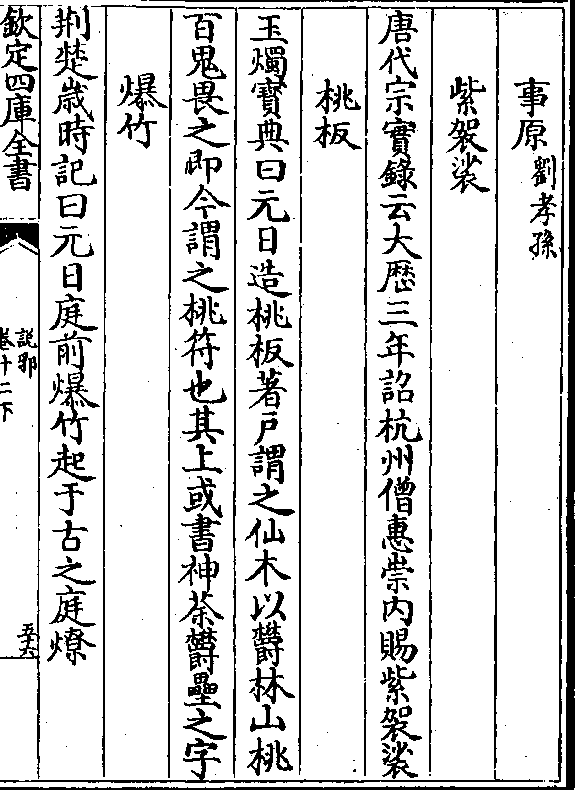 事原劉孝孫
紫袈裟
唐代宗實錄云大歴三年詔杭州僧惠崇内賜紫袈裟
桃板
玉燭寶典曰元日造桃板著戶謂之仙木以欝林山桃
百鬼畏之即今謂之桃符也其上或書神荼欝壘之字
爆竹
荆楚歳時記曰元日庭前爆竹起于古之庭燎
欽定四庫全書
說郛
卷十二下
五六